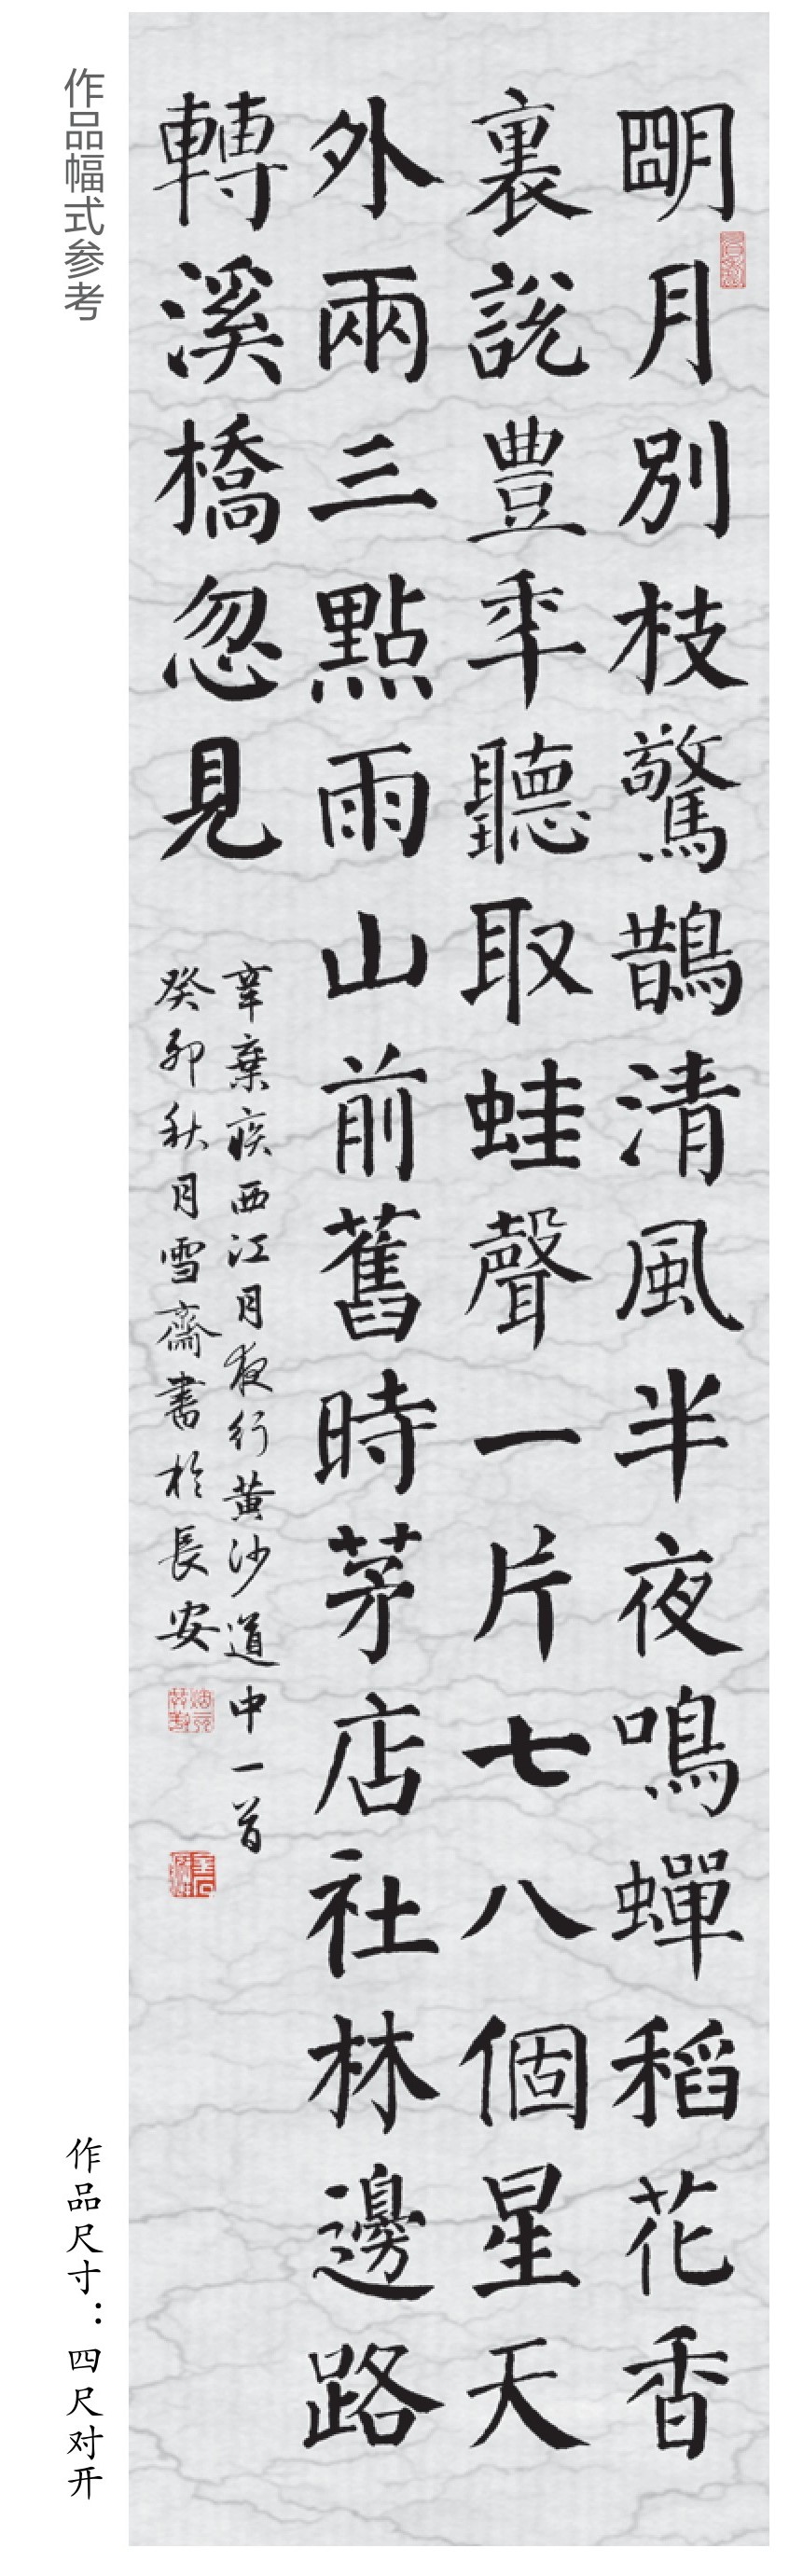 作品幅式参考
明月別枝驚鵲清風半夜鳴蟬稻花香
裏説豊年聽取蛙聲一片七八個星天
外兩三點雨山前舊時茅店社林邊路
轉溪橋忽見
辛棄疾西江月夜行黄沙道中一首
癸卯秋月雪齋書於長安
作品尺寸：四尺对开